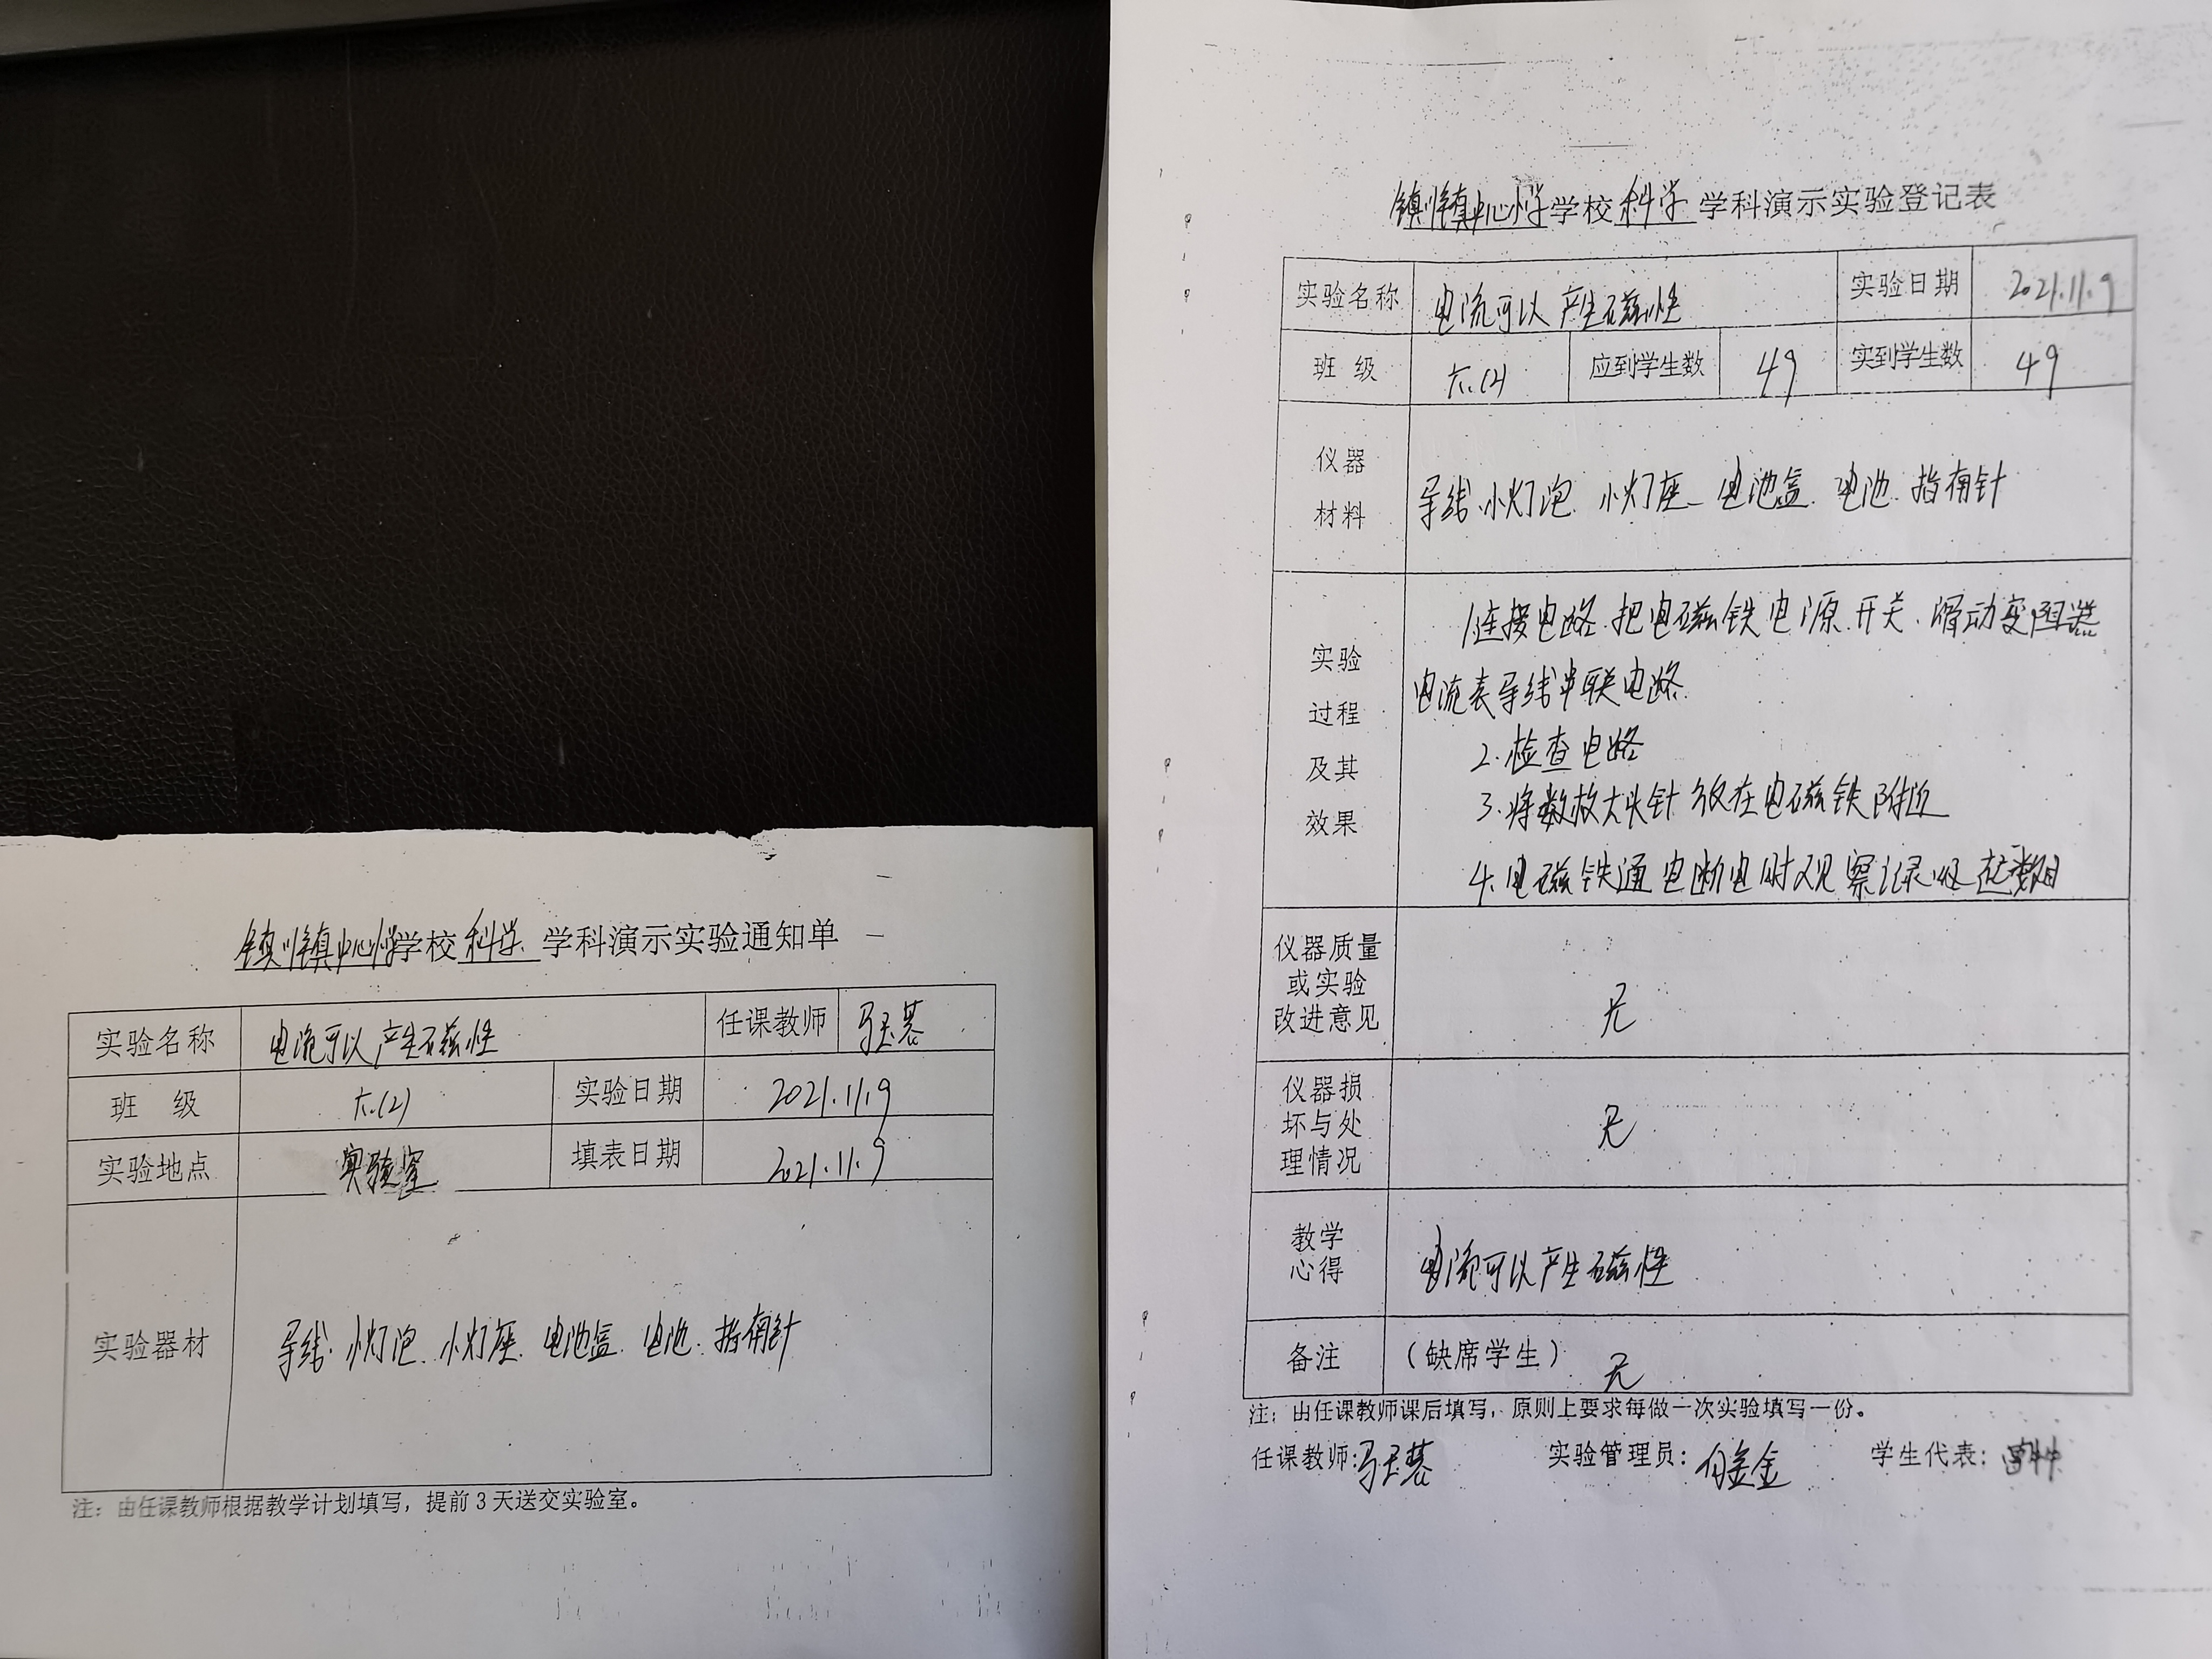 镇川镇中心小学学校科学学科演示实验通知单
实验名称 电流可以产生磁性 任课教师
班 级 六.(2) 实验日期 2021.11.9
实验地点 实验室 填表日期 2021.11.9
实验器材 导线.小灯泡.小灯座.电池盒.电池.指南针
注：由任课教师根据教学计划填写，提前3天送交实验室。
镇川镇中心小学学校科学学科演示实验登记表
实验名称 电流可以产生磁性 实验日期 2021.11.9
班 级 六.(2) 应到学生数 49 实到学生数 49
仪器
材料
导线.小灯泡.小灯座.电池盒.电池.指南针
实验
过程
及其
效果
1.连接电路.把电磁铁电源.开关.滑动变阻器
电流表导线串联电路.
2.检查电路
3.将数枚大头针放在电磁铁附近
4.电磁铁通电断电时观察记录吸起数目
仪器质量
或实验
改进意见
无
仪器损
坏与处
理情况
无
教学
心得
电流可以产生磁性
备注 （缺席学生） 无
注：由任课教师课后填写，原则上要求每做一次实验填写一份。
任课教师： 实验管理员： 学生代表：